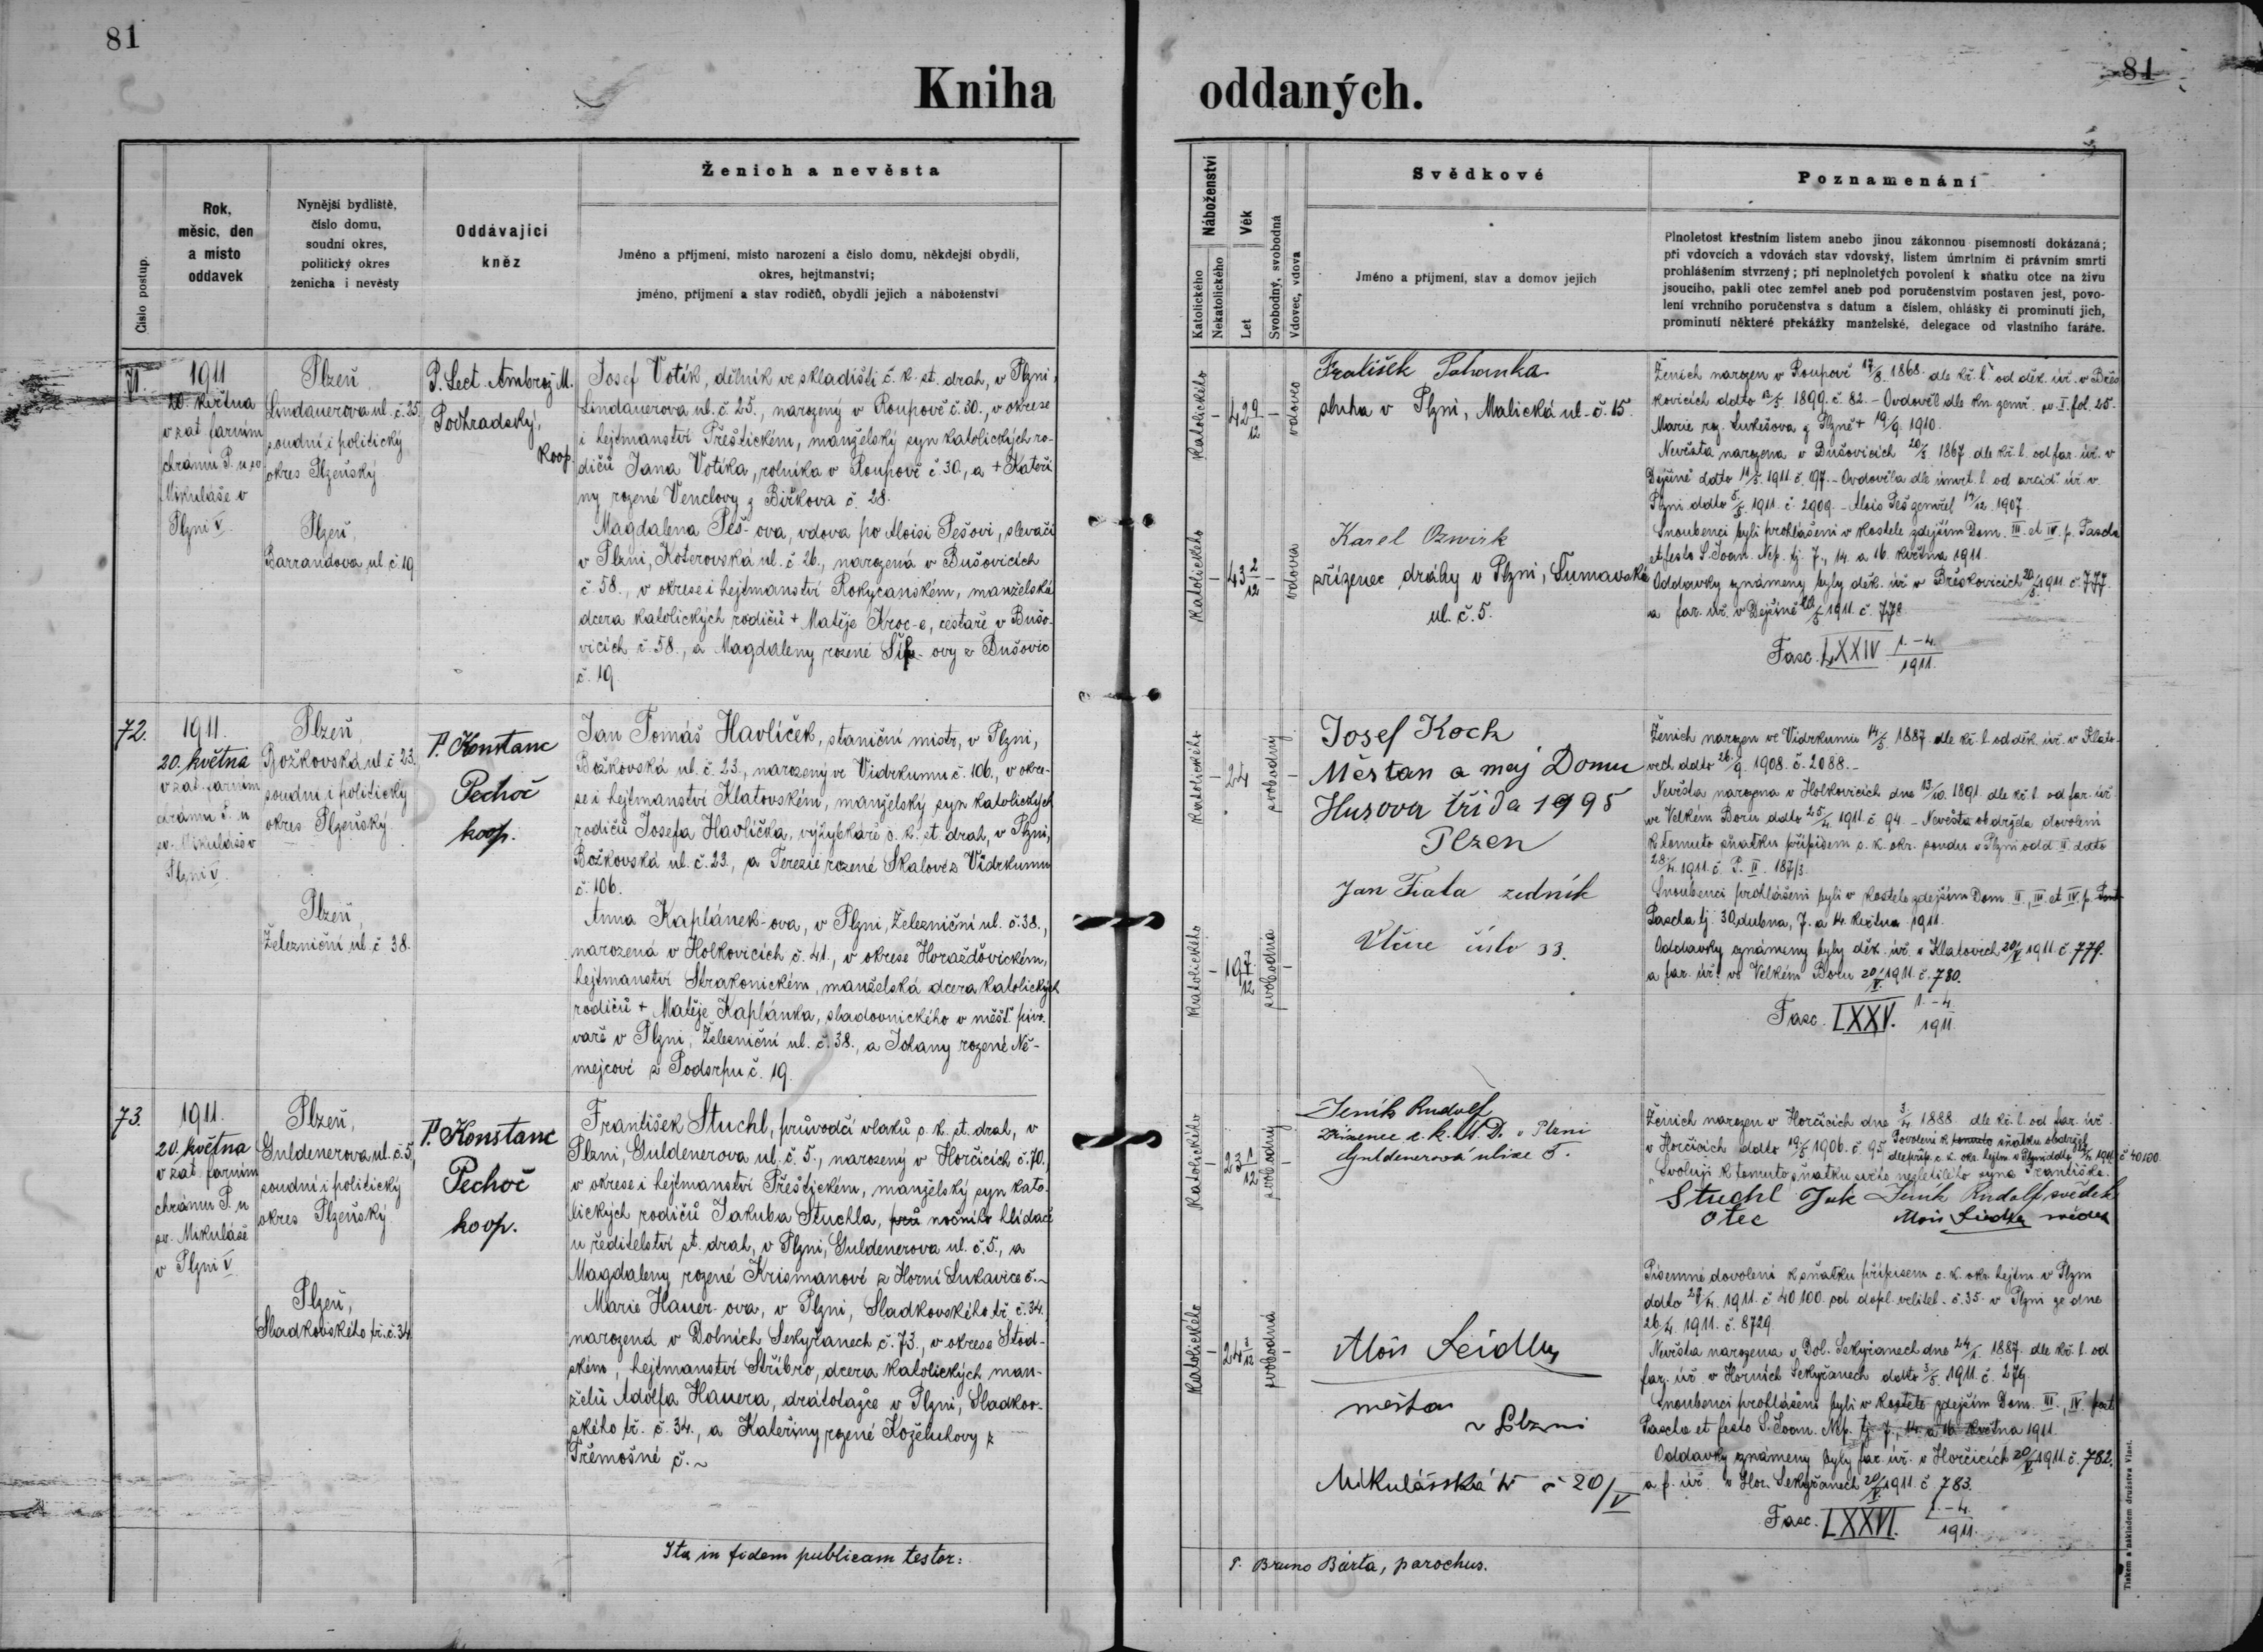 81
81
Kniha oddaných.
Číslo postup.
Rok,
měsíc, den
a místo
oddavek
Nynější bydliště,
číslo domu,
soudní okres,
politický okres
ženicha i nevěsty
Oddávající
kněz
Ženich a nevěsta
Jméno a příjmení, místo narození a číslo domu, někdejší obydlí,
okres, hejtmanství;
jméno, příjmení a stav rodičů, obydlí jejich a náboženství
Náboženství
Katolického
Nekatolického
Věk
Let
Svobodný, svobodná
Vdovec, vdova
Svědkové
Jméno a příjmení, stav a domov jejich
Poznamenání
Plnoletost křestním listem anebo jinou zákonnou písemností dokázaná;
při vdovcích a vdovách stav vdovský, listem úmrtním či právním smrti
prohlášením stvrzený; při neplnoletých povolení k sňatku otce na živu
jsoucího, pakli otec zemřel aneb pod poručenstvím postaven jest, povo-
lení vrchního poručenstva s datum a číslem, ohlášky či prominutí jich,
prominutí některé překážky manželské, delegace od vlastního faráře.
71.
1911
20. května
v zat. farním
chrámu P. u sv.
Mikuláše v
Plzni V.
Plzeň
Lindauerova ul. č. 25,
soudní i politický
okres Plzeňský
Plzeň,
Barrandova ul. č. 19
P. Lect. Ambrož M.
Podhradský,
koop.
Josef Votík, dělník ve skladišti c. k. st. drah, v Plzni,
Lindauerova ul. č. 25., narozený v Roupově č. 30., v okrese
i hejtmanství Přeštickém, manželský syn katolických ro-
dičů Jana Votíka, rolníka v Roupově č. 30, a + Kateři
ny rozené Venclovy z Biřkova č. 28.
Magdalena Peš-ova, vdova po Aloisi Pešovi, slevači
v Plzni, Koterovská ul. č. 26., narozená v Bušovicích
č. 58., v okrese i hejtmanství Rokycanském, manželská
dcera katolických rodičů + Matěje Kroc-e, cestáře v Bušo-
vicích č. 58., a Magdaleny rozené Šíp-ovy z Bušovic
č. 19
Katolického
42 9/12
vdovec
Katolického
43 2/12
vdova
Fratišek Pohanka
sluha v Plzni, Malická ul. č. 15.
Karel Ozwirk
zřízenec dráhy v Plzni, Šumavská
ul. č. 5.
Ženich narozen v Roupově 17/8. 1868. dle kř. l. od děk. úř. v Břes
kovicích ddto 12/5. 1899. č. 82. - Ovdověl dle kn. zemř. sv. I. fol. 25.
Marie roz. Lukešova z Plzně + 19/9. 1910.
Nevěsta narozena v Bušovicích 20/3. 1867. dle kř. l. od far. úř. v
Dýšině ddto 11/5. 1911. č. 197. - Ovdověla dle úmrt. l. od arcid. úř. v
Plzni ddto 5/5. 1911. č. 2909. - Alois Peš zemřel 14/12. 1907.
Snoubenci byli prohlášeni v kostele zdejším Dom. III. et IV. p. Pascha
et festo S. Joan. Nep. tj. 7., 14. a 16. května 1911.
Oddavky známeny byly děk. úř. v Břeskovicích 20/5. 1911. č. 777.
a far. úř. v Dejšině 20/5. 1911. č. 778.
Fasc. LXXIV 1.-4./1911.
72.
1911.
20. května
v zat. farním
chrámu P. u
sv. Mikuláše v
Plzni V.
Plzeň,
Božkovská ul. č. 23.,
soudní i politický
okres Plzeňský.
Plzeň,
Železniční ul. č. 38.
P. Konstanc
Pechoč
koop.
Jan Tomáš Havlíček, staniční mistr, v Plzni,
Božkovská ul. č. 23., narozený ve Vidrkumu č. 106., v okre-
se i hejtmanství Klatovském, manželský syn katolických
rodičů Josefa Havlíčka, výhybkáře c. k. st. drah, v Plzni,
Božkovská ul. č. 23., a Terezie rozené Skalové z Vidrkumu
č. 106.
Anna Kaplánek-ova, v Plzni, Železniční ul. č. 38.,
narozená v Holkovicích č. 41., v okrese Horažďovickém,
hejtmanství Strakonickém, manželská dcera katolických
rodičů + Matěje Kaplánka, sladovnického v měšť. pivo-
vaře v Plzni, Železniční ul. č. 38., a Johany rozené Ně-
mejcové z Podsrpu č. 19.
Katolického
24
svobodný
Katolického
19 7/12
svobodná
Josef Koch
Měštan a maj Domu
Husova třída 1995
Plzen
Jan Fiala zedník
Vlčice číslo 33.
Ženich narozen ve Vidrkumu 14/5. 1887. dle kř. l. od děk. úř. v Klato-
vech ddto 26/9. 1908. č. 2088. -
Nevěsta narozena v Holkovicích dne 13/10. 1891. dle kř. l. od far. úř.
ve Velkém Boru ddto 25/4. 1911. č. 94. - Nevěsta obdržela dovolení
k tomuto sňatku přípisem c. k. okr. soudu v Plzni odd. II. ddto
28/4. 1911. č. P. II. 187/3.
Snoubenci prohlášeni byli v kostele zdejším Dom. II., III. et IV. p. Past
Pascha tj. 30. dubna, 7. a 14. května 1911.
Oddavky známeny byly děk. úř. v Klatovech 20/V 1911. č. 779.
a far. úř. ve Velkém Boru 20/V. 1911. č. 780.
Fasc. LXXV. 1.-4./1911.
73.
1911.
20. května
v zat. farním
chrámu P. u
sv. Mikuláše
v Plzni V.
Plzeň,
Guldenerova ul. č. 5,
soudní i politický
okres Plzeňský
Plzeň,
Sladkovského tř. č. 34
P. Konstanc
Pechoč
koop.
František Stuchl, průvodčí vlaků c. k. st. drah, v
Plzni, Guldenerova ul. č. 5., narozený v Horčicích č. 70.,
v okrese i hejtmanství Přeštickém, manželský syn kato-
lických rodičů Jakuba Stuchla, prů nočního hlídače
u ředitelství st. drah, v Plzni, Guldenerova ul. č. 5., a
Magdaleny rozené Krismanové z Horní Lukavice č. ~
Marie Hauer-ova, v Plzni, Sladkovského tř. č. 34.
narozená v Dolních Sekyřanech č. 73., v okrese Stod-
ském, hejtmanství Stříbro, dcera katolických man-
želů Adolfa Hauera, drátotažce v Plzni, Sladkov-
ského tř. č. 34., a Kateřiny rozené Koželuhovy z
Třemošné č. ~
Katolického
23 1/12
svobodný
Katolického
24 3/12
svobodná
Jeník Rudolf
Zřízenec c. k. St. D. v Plzni
Guldenerová ulice 5.
Alois Seidler
měšťan
v Plzni
Mikulášská tř č 20/V
Ženich narozen v Horčicích dne 3/4. 1888. dle kř. l. od far. úř.
v Horčicích ddto 19/5 1906. č. 95. Povolení k tomuto sňatku obdržel
dle příp. c. k. okr. hejtm. v Plzni ddto 28/4. 1911. č 40100.
"Svoluji k tomuto sňatku svého nezletilého syna Františka.
Stuchl Jak Jeník Rudolf, svědek
otec Alois Seidler svědek
Písemné dovolení k sňatku přípisem c. k. okr. hejtm. v Plzni
ddto 28/4. 1911. č. 40100. od dopl. velitel. č. 35. v Plzni ze dne
26/4. 1911. č. 8729.
Nevěsta narozena v Dol. Sekyřanech dne 24/1. 1887. dle kř. l. od
far. úř. v Horních Sekyřanech ddto 3/5. 1911. č. 279.
Snoubenci prohlášeni byli v kostele zdejším Dom. III., IV. post
Pascha et festo S. Joan. Nep. tj. 7., 14. a 16. května 1911.
Oddavky známeny byly far. úř. v Horčicích 20/V 1911. č. 782.
a f. úř. v Hor. Sekyřanech 20/V. 1911. č. 783.
Fasc. LXXVI. 1.-4./1911.
Ita in fidem publicam testor:
P. Bruno Bárta, parochus.
Tiskem a nákladem družstva Vlast.